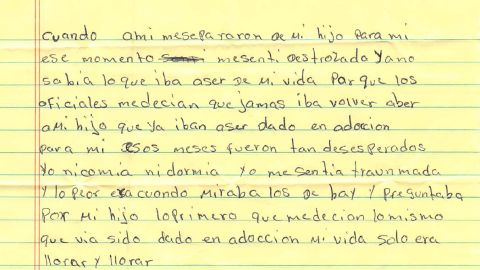 cuando ami mesepararon de mi hijo Para mi
ese momento mesenti destrozado Yano
sabia loque iba aser De mi vida Por que los
oficiales medecian que jamas iba volver aber
a Mi hijo que ya iban aser dado en adoccion
Para mi Esos meses fueron tan desesperados
Yo nicomia nidormia Yo mesentia traunmada
Y lo peor era cuando miraba los De bay Y preguntaba
Por mi hijo loprimero que medecion lomismo
que via sido dado en adoccion Mi vida solo era
llorar y llorar